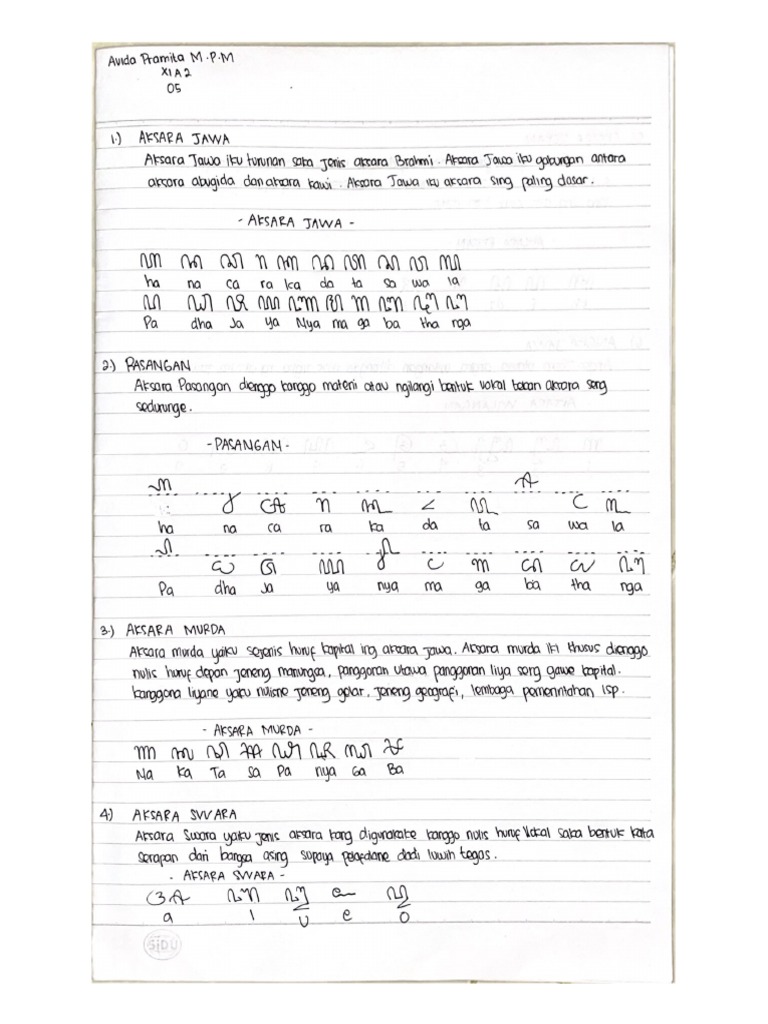 Avida Pramita M.P.M
XI A 2
05
1.) AKSARA JAWA
Aksara Jawa iku turunan saka jenis aksara Brahmi. Aksara Jawa iku gabungan antara
aksara abugida dan aksara kawi. Aksara Jawa iku aksara sing paling dasar.
- AKSARA JAWA -
ꦲ ꦤ ꦕ ꦫ ꦏ ꦢ ꦠ ꦱ ꦮ ꦭ
ha na ca ra ka da ta sa wa la
ꦥ ꦝ ꦗ ꦪ ꦚ ꦩ ꦒ ꦧ ꦛ ꦔ
Pa dha Ja ya Nya ma ga ba tha nga
2.) PASANGAN
Aksara Pasangan dienggo kanggo mateni atau ngilangi bentuk vokal bacan aksara seng
sedurunge.
- PASANGAN -
ha na ca ra ka da ta sa wa la
Pa dha Ja ya nya ma ga ba tha nga
3.) AKSARA MURDA
Aksara murda yaiku sejenis huruf kapital ing aksara jawa. Aksara murda iki khusus dienggo
nulis huruf depan jeneng manungsa, panggonan utawa panggonan liya seng gawe kapital.
kanggona liyane yaku nulisne jeneng gelar, jeneng geografi, lembaga pemerintahan lsp.
- AKSARA MURDA -
Na Ka Ta Sa Pa nya Ga Ba
4.) AKSARA SWARA
Aksara Swara yaku jenis aksara kang digunakake kanggo nulis huruf Vokal saka bentuk kata
serapan dari bangsa asing supaya pelafalane dadi luwih tegas.
- AKSARA SWARA -
a I U e O
SiDU